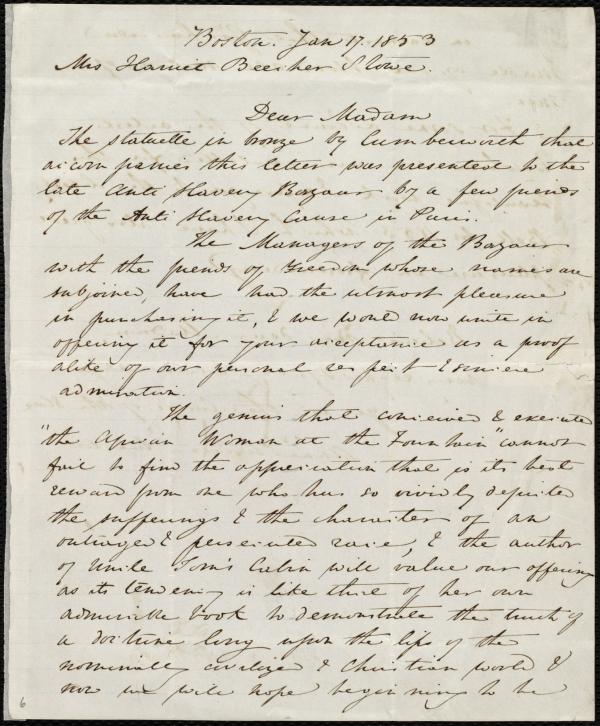 Boston. Jan 17. 1853
Mrs Harriet Beecher Stowe.
Dear Madam
The statuette in bronze by Cumberworth that
accompanies this letter was presented to the
late Anti Slavery Bazaar by a few friends
of the Anti Slavery Cause in Paris.
The Managers of the Bazaar
with the friends of freedom whose names are
subjoined, have had the utmost pleasure
in purchasing it, & we would now unite in
offering it for your acceptance as a proof
alike of our personal respect & sincere
admiration.
The genius that conceived & executed
"the African Woman at the Fountain" cannot
fail to find the appreciation that is its best
reward from one who has so vividly depicted
the sufferings & the character of an
outraged & persecuted race, & the author
of Uncle Tom's Cabin will value our offering
as its tendency is like that of her own
admirable book to demonstrate the truth of
a doctrine long upon the lips of the
nominally civilized & Christian world &
now we will hope beginning to be
6